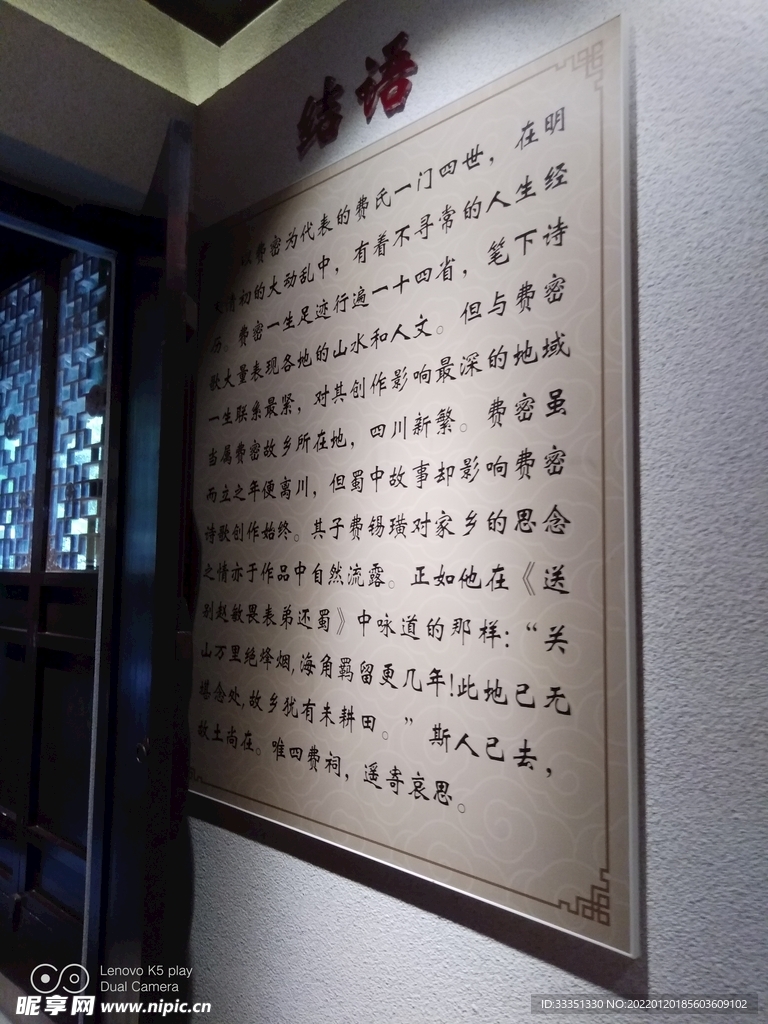 结语
以费密为代表的费氏一门四世，在明
末清初的大动乱中，有着不寻常的人生经
历。费密一生足迹行遍一十四省，笔下诗
歌大量表现各地的山水和人文。但与费密
一生联系最紧，对其创作影响最深的地域
当属费密故乡所在地，四川新繁。费密虽
而立之年便离川，但蜀中故事却影响费密
诗歌创作始终。其子费锡璜对家乡的思念
之情亦于作品中自然流露。正如他在《送
别赵敏畏表弟还蜀》中咏道的那样：“关
山万里绝烽烟,海角羁留更几年!此地已无
堪念处,故乡犹有未耕田。”斯人已去，
故土尚在。唯四费祠，遥寄哀思。
Lenovo K5 play
Dual Camera
昵享网 www.nipic.cn
ID:33351330 NO:20220120185603609102